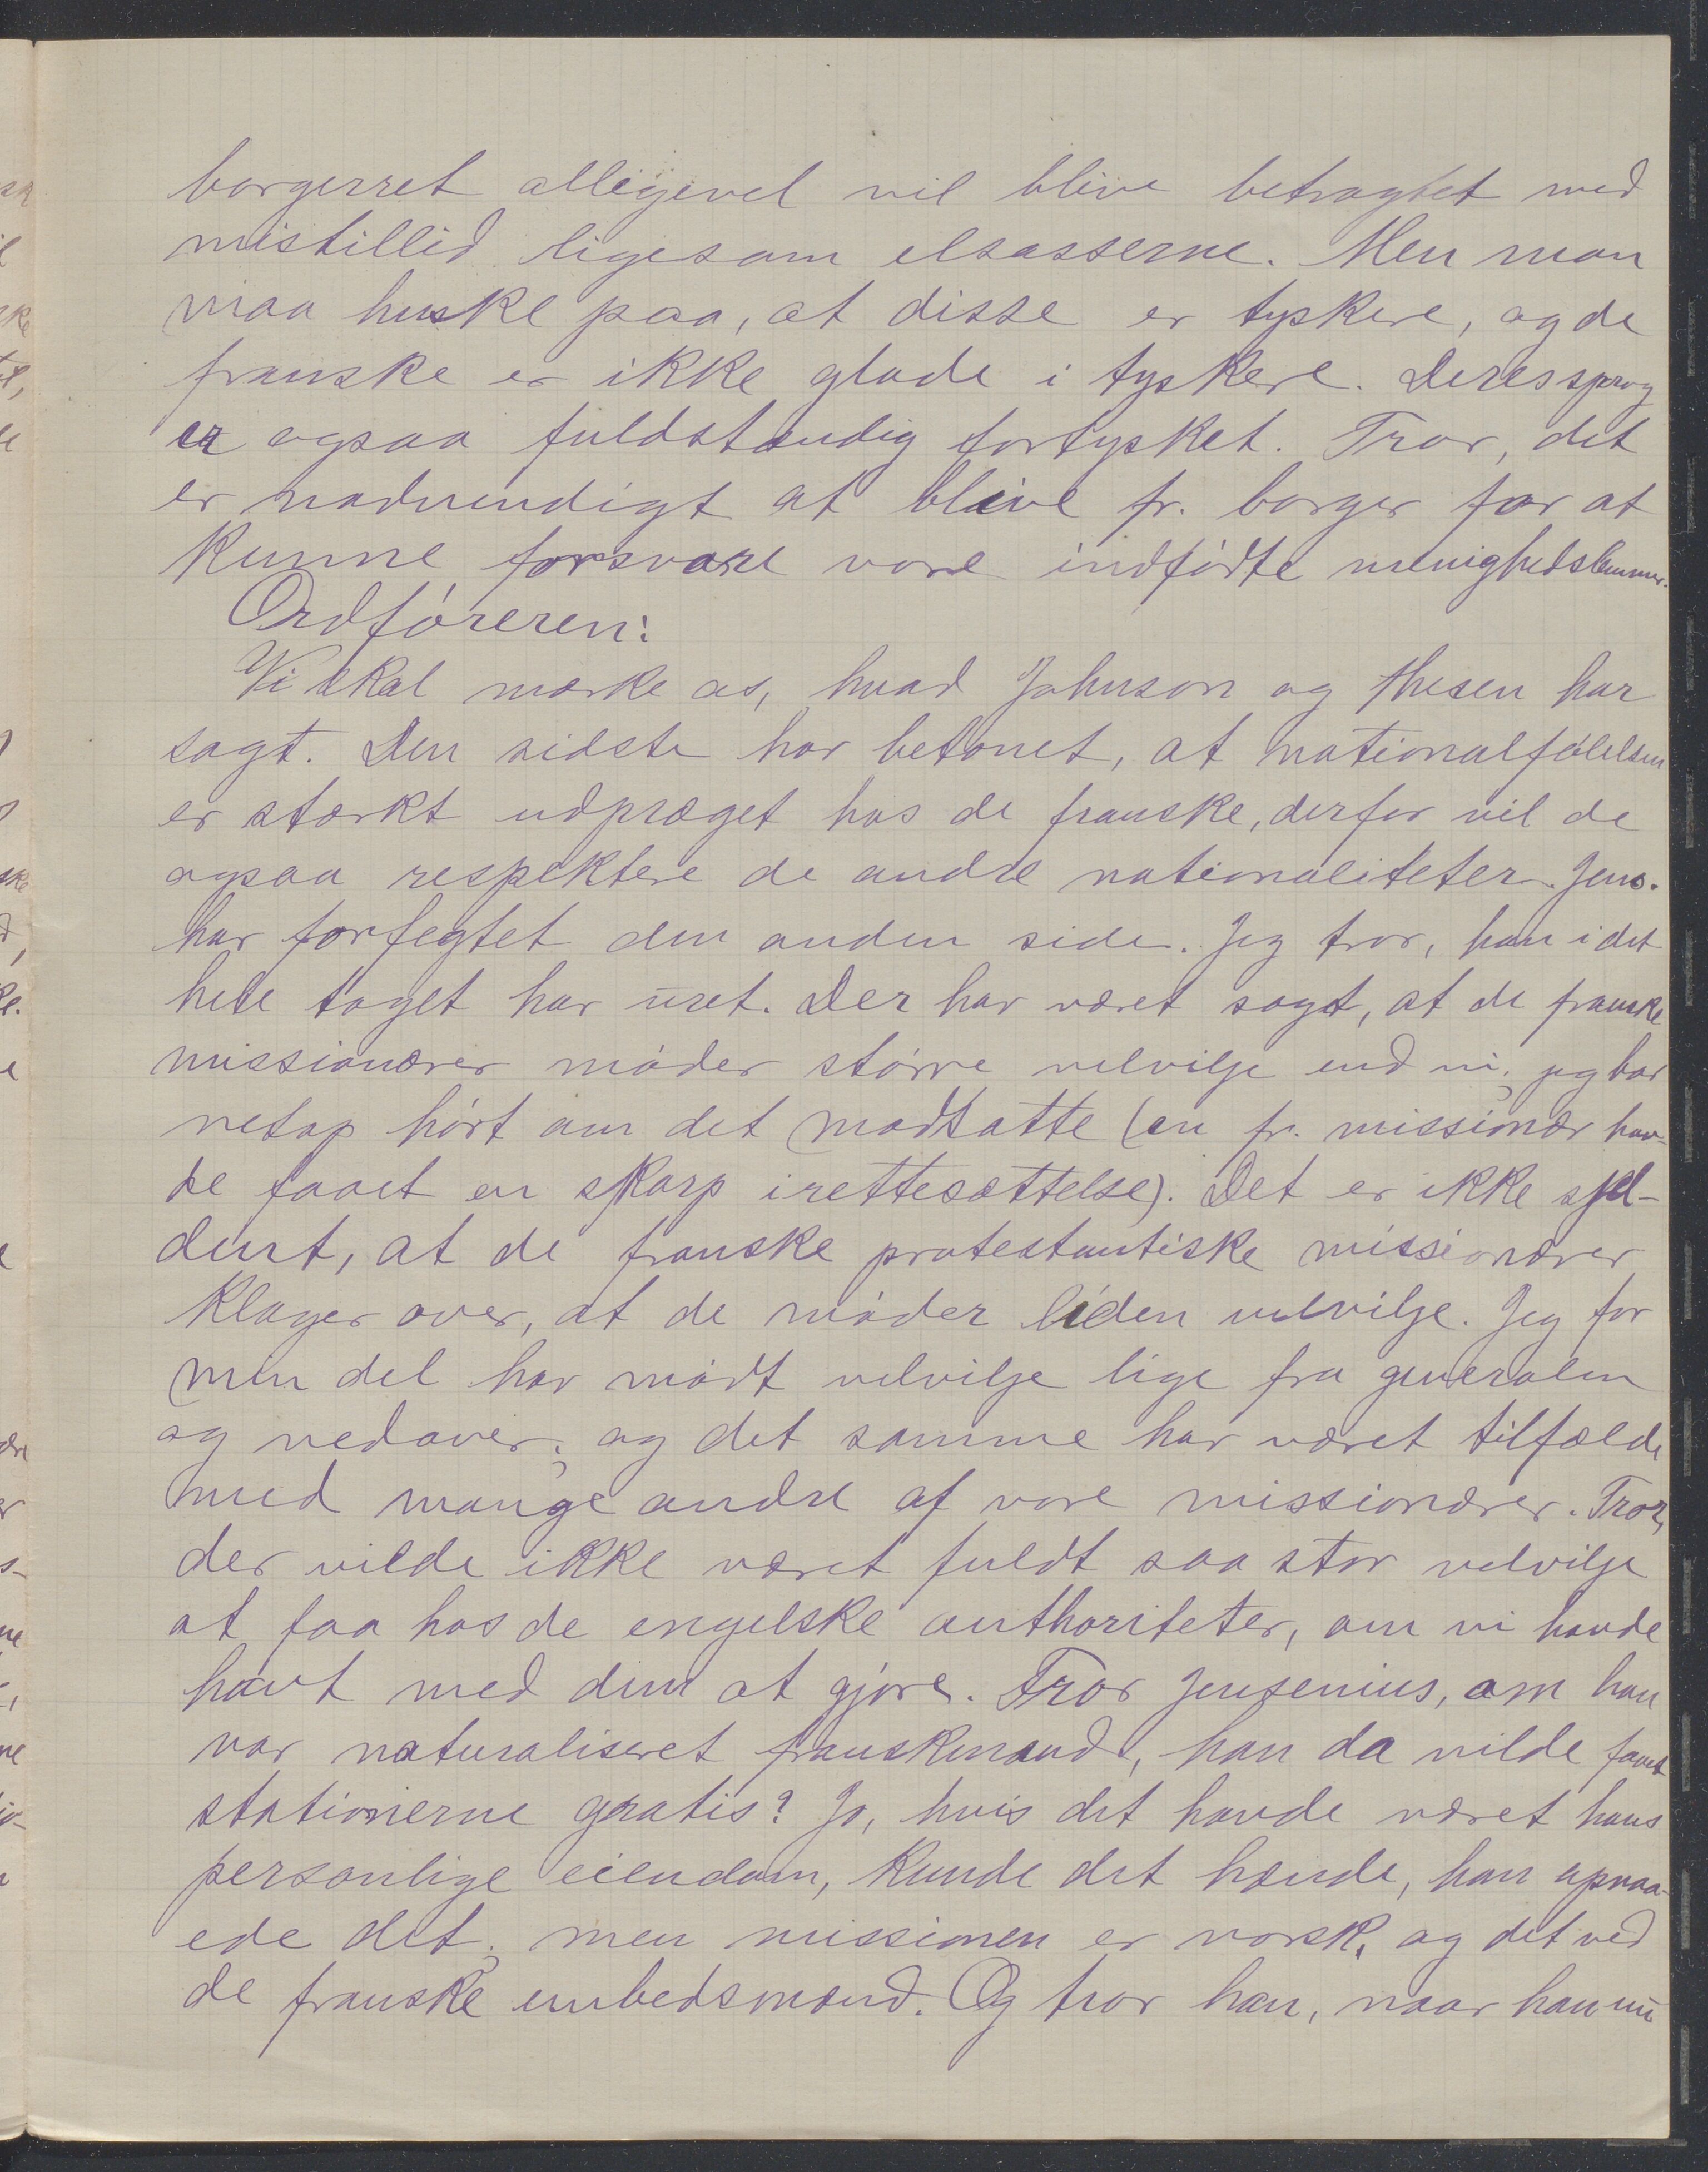 borgerret alligevel vil blive betragtet med
mistillid ligesom elsasserne. Men man
maa huske paa, at disse er tyskere, og de
franske er ikke glade i tyskere. Deres sprog
er ogsaa fuldstændig fortysket. Tror, det
er nødvendigt at blive fr. borger for at
kunne forsvare vore indfødte menighedslemmer.
Ordføreren:
Vi skal mærke os, hvad Johnson og Thesen har
sagt. Den sidste har betonet, at nationalfølelsen
er stærkt udpræget hos de franske, derfor vil de
ogsaa respektere de andre nationaliteter. Jens.
har forfegtet den anden side. Jeg tror, han i det
hele taget har uret. Der har været sagt, at de franske
missionærer møder større velvilje end vi; jeg har
netop hørt om det modsatte (en fr. missionær hav-
de faaet en skarp irettesættelse). Det er ikke sjel-
dent, at de franske protestantiske missionærer
klager over, at de møder liden velvilje. Jeg for
min del har mødt velvilje lige fra generalen
og nedover; og det samme har været tilfælde
med mange andre af vore missionærer. Tror,
der vilde ikke været fuldt saa stor velvilje
at faa hos de engelske authoriteter, om vi havde
havt med dem at gjøre. Tror Jensenius, om han
var naturaliseret franskmand, han da vilde faaet
stationerne gratis? Jo, hvis det havde været hans
personlige eiendom, kunde det hænde, han opnaa-
ede det; men missionen er norsk, og det ved
de franske embedsmænd. Og tror han, naar han nu